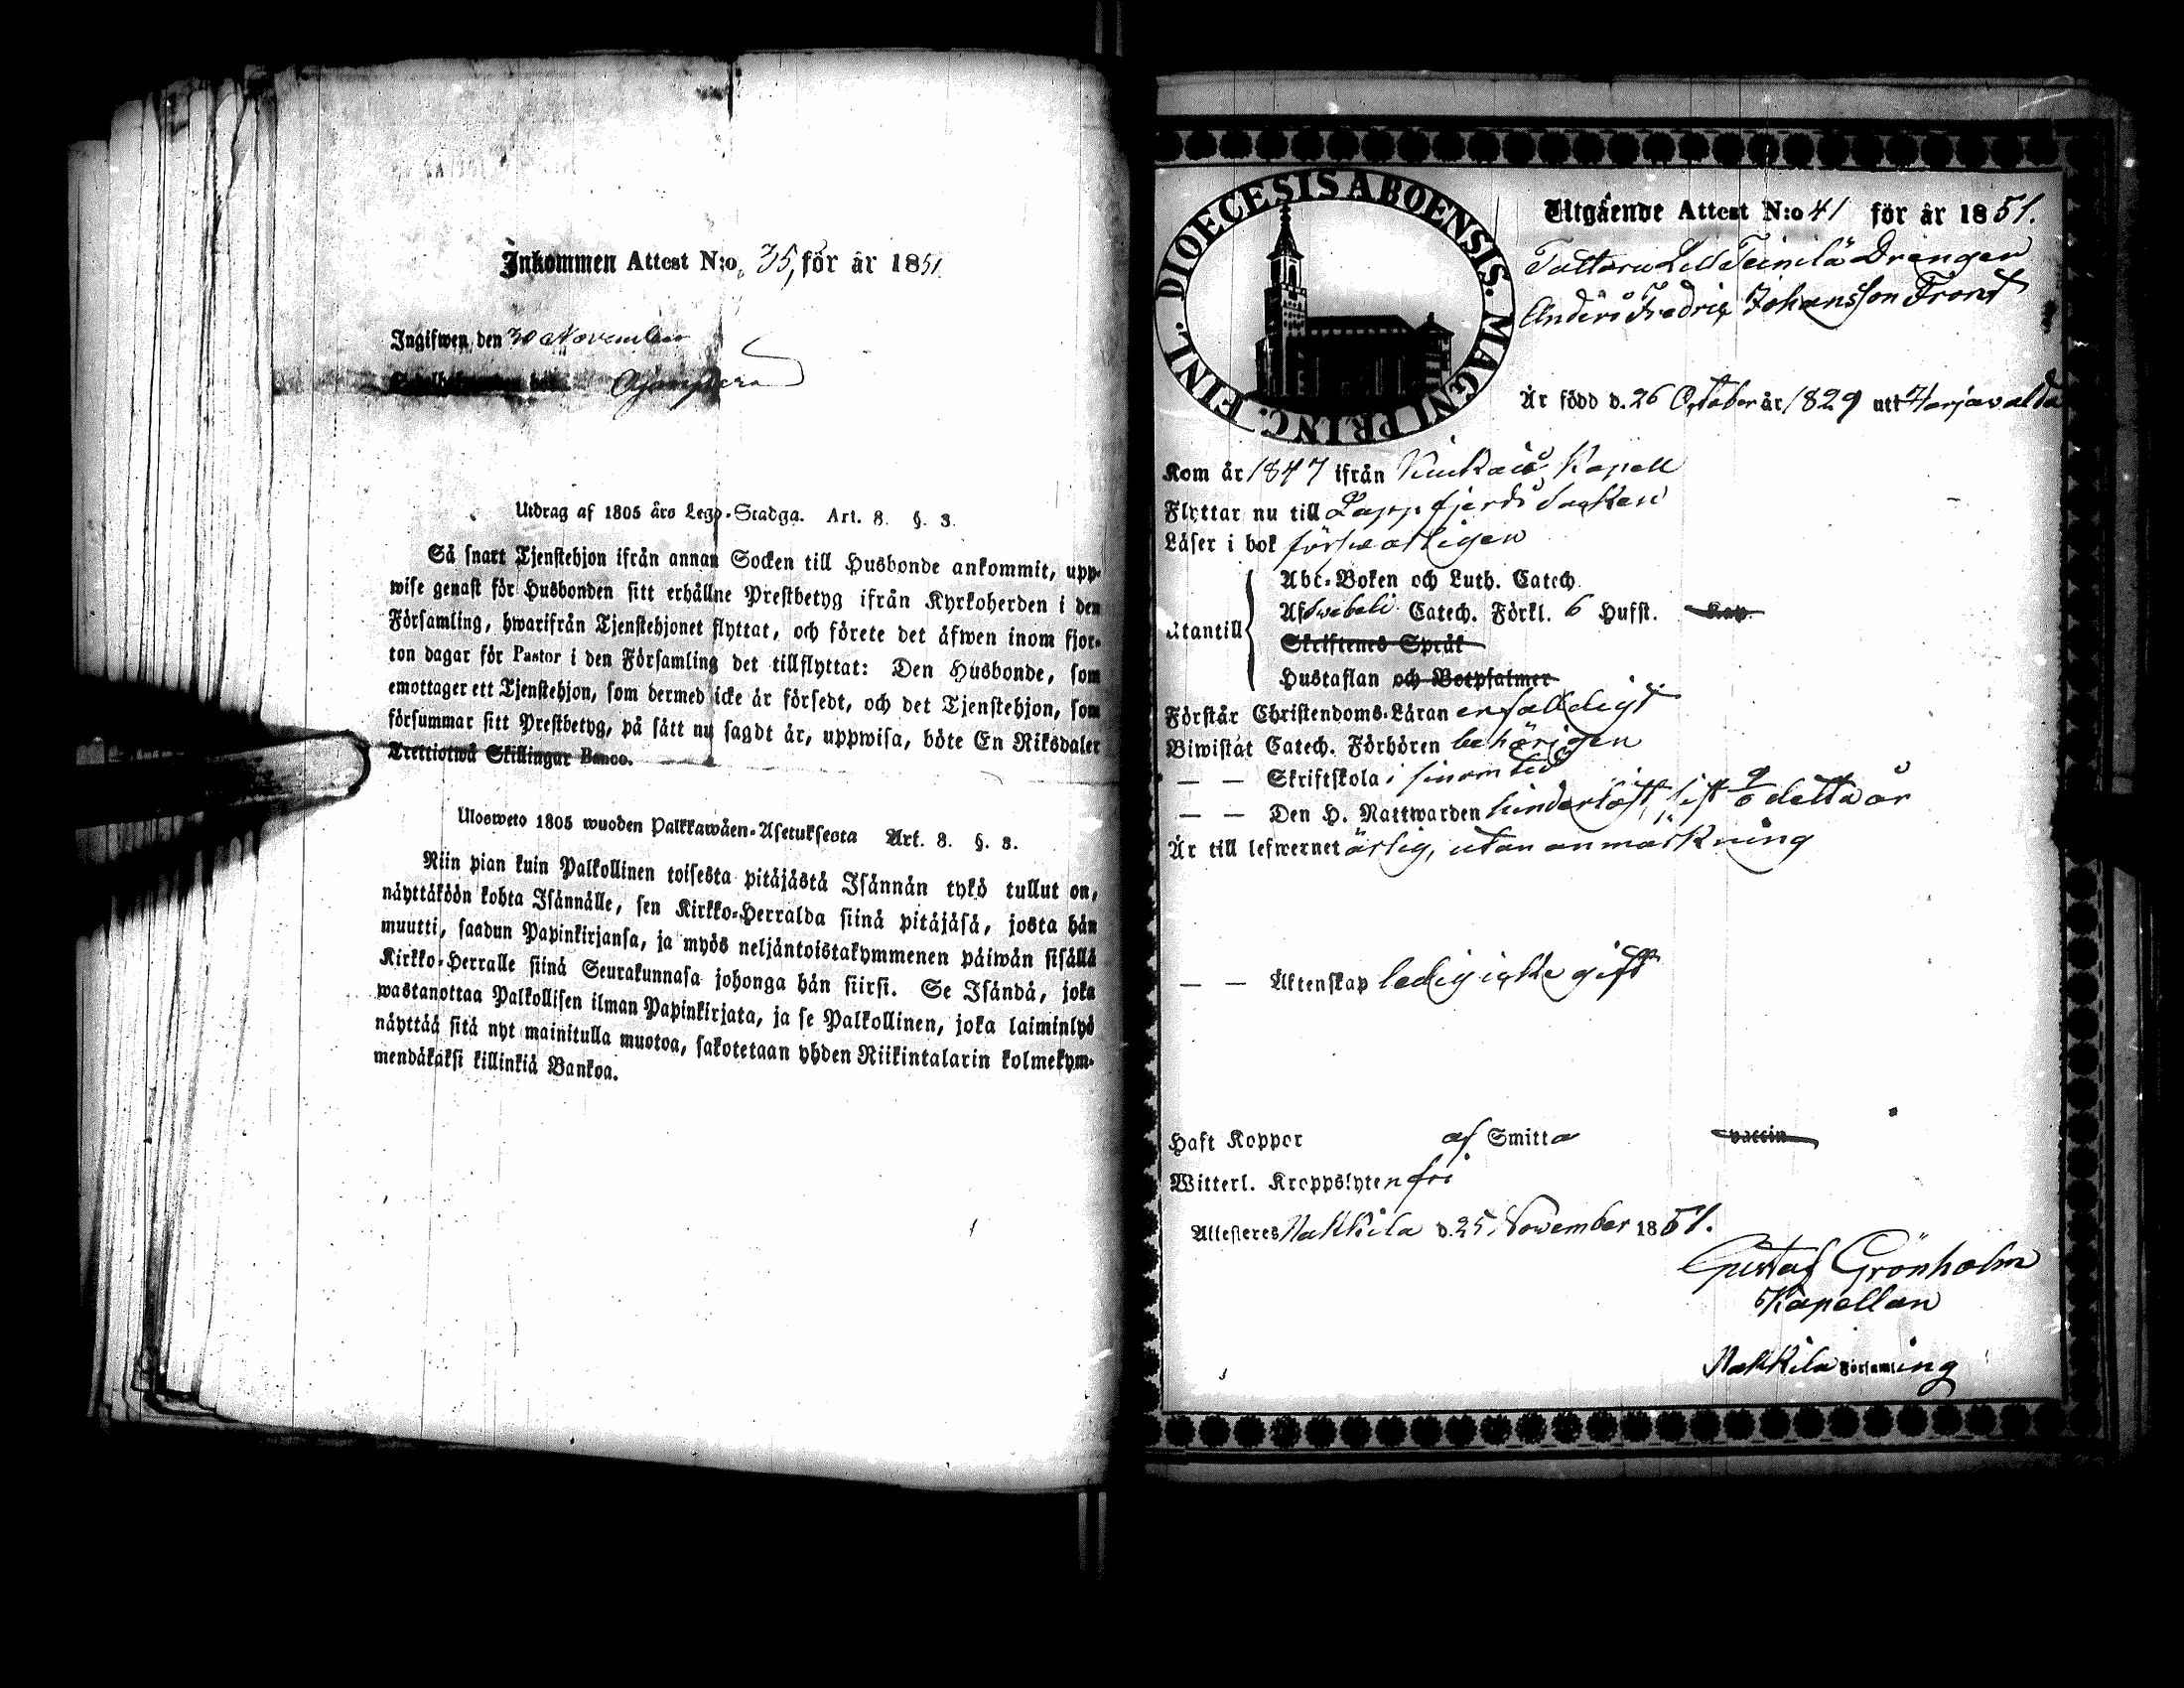 Inkommen Attest N:o 35, för år 1851
Ingifwen den 30 November
Utdrag af 1805 års Lego-Stadga. Art. 8. §. 3.
Så snart Tjenstehjon ifrån annan Socken till Husbonde ankommit, upp-
wise genast för Husbonden sitt erhållne Prestbetyg ifrån Kyrkoherden i den
Församling, hwarifrån Tjenstehjonet flyttat, och förete det äfwen inom fjor-
ton dagar för Pastor i den Församling det tillflyttat: Den Husbonde, som
emottager ett Tjenstehjon, som dermed icke är försedt, och det Tjenstehjon, som
försummar sitt Prestbetyg, på sätt nu sagdt är, uppwisa, böte En Riksdaler
Trettiotwå Skillingar Banco.
Ulosweto 1805 wuoden Palkkawäen-Asetuksesta Art. 8. §. 3.
Niin pian kuin Palkollinen toisesta pitäjästä Isännän tykö tullut on,
näyttäköön kohta Isännälle, sen Kirkko-Herralda siinä pitäjäsä, josta hän
muutti, saadun Papinkirjansa, ja myös neljäntoistakymmenen päiwän sisällä
Kirkko-Herralle siinä Seurakunnasa johonga hän siirsi. Se Isändä, joka
wastanottaa Palkollisen ilman Papinkirjata, ja se Palkollinen, joka laiminlyö
näyttää sitä nyt mainitulla muotoa, sakotetaan yhden Riikintalarin kolmekym-
mendäkaksi killinkiä Bankoa.
DIOECESIS ABOENSIS. MAGNI PRINC. FINL.
Utgående Attest N:o 41 för år 1851.
Tattara Lill Teinilä Drängen
Anders Fredric Johansson Front
Är född d. 26 October år 1829 utt Harjavalda
Kom år 1847 ifrån Kiukais Kapell
Flyttar nu till Lappfjerds Socken
Läser i bok försvarligen
Utantill
Abc-Boken och Luth. Catech.
Af Svebeli Catech. Förkl. 6 Hufst. Kap.
Skriftenes Språk
Hustaflan och Botpsalmer
Förstår Christendoms-Läran enfaldigt
Biwistat Catech. Förhören behörigen
— — Skriftskola i sinom tid
— — Den H. Nattwarden hinderlöst, sist 9/6 detta år
Är till lefwernet ärlig, utan anmärkning
— — Äktenskap ledig icke gift
Haft Koppor af Smitta vaccin
Witterl. Kroppslyten fri
Attesteres Nakkila d. 25 November 1851.
Gustaf Grönholm
Kapellan
Nakkila Församling